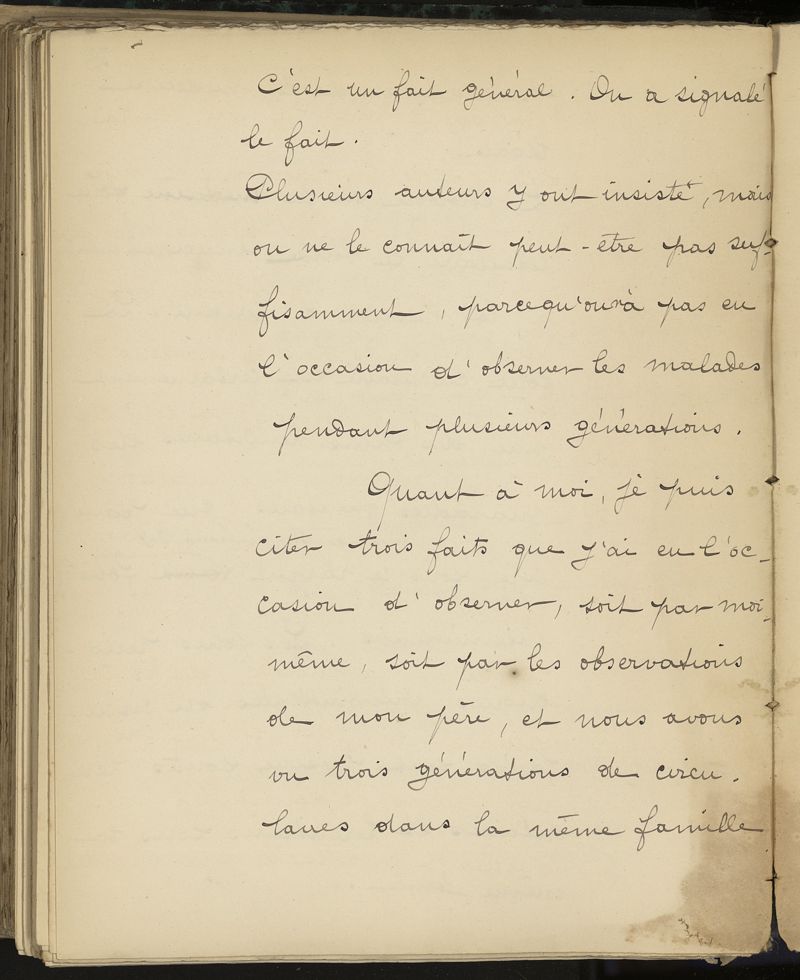 C'est un fait général. On a signalé
le fait.
Plusieurs auteurs y ont insisté, mais
on ne le connaît peut-etre pas suf-
fisamment, parcequ'on n'a pas eu
l'occasion d'observer les malades
pendant plusieurs générations.
Quant à moi, je puis
citer trois faits que j'ai eu l'oc-
casion d'observer, soit par moi-
même, soit par les observations
de mon père, et nous avons
vu trois générations de circu-
laires dans la même famille